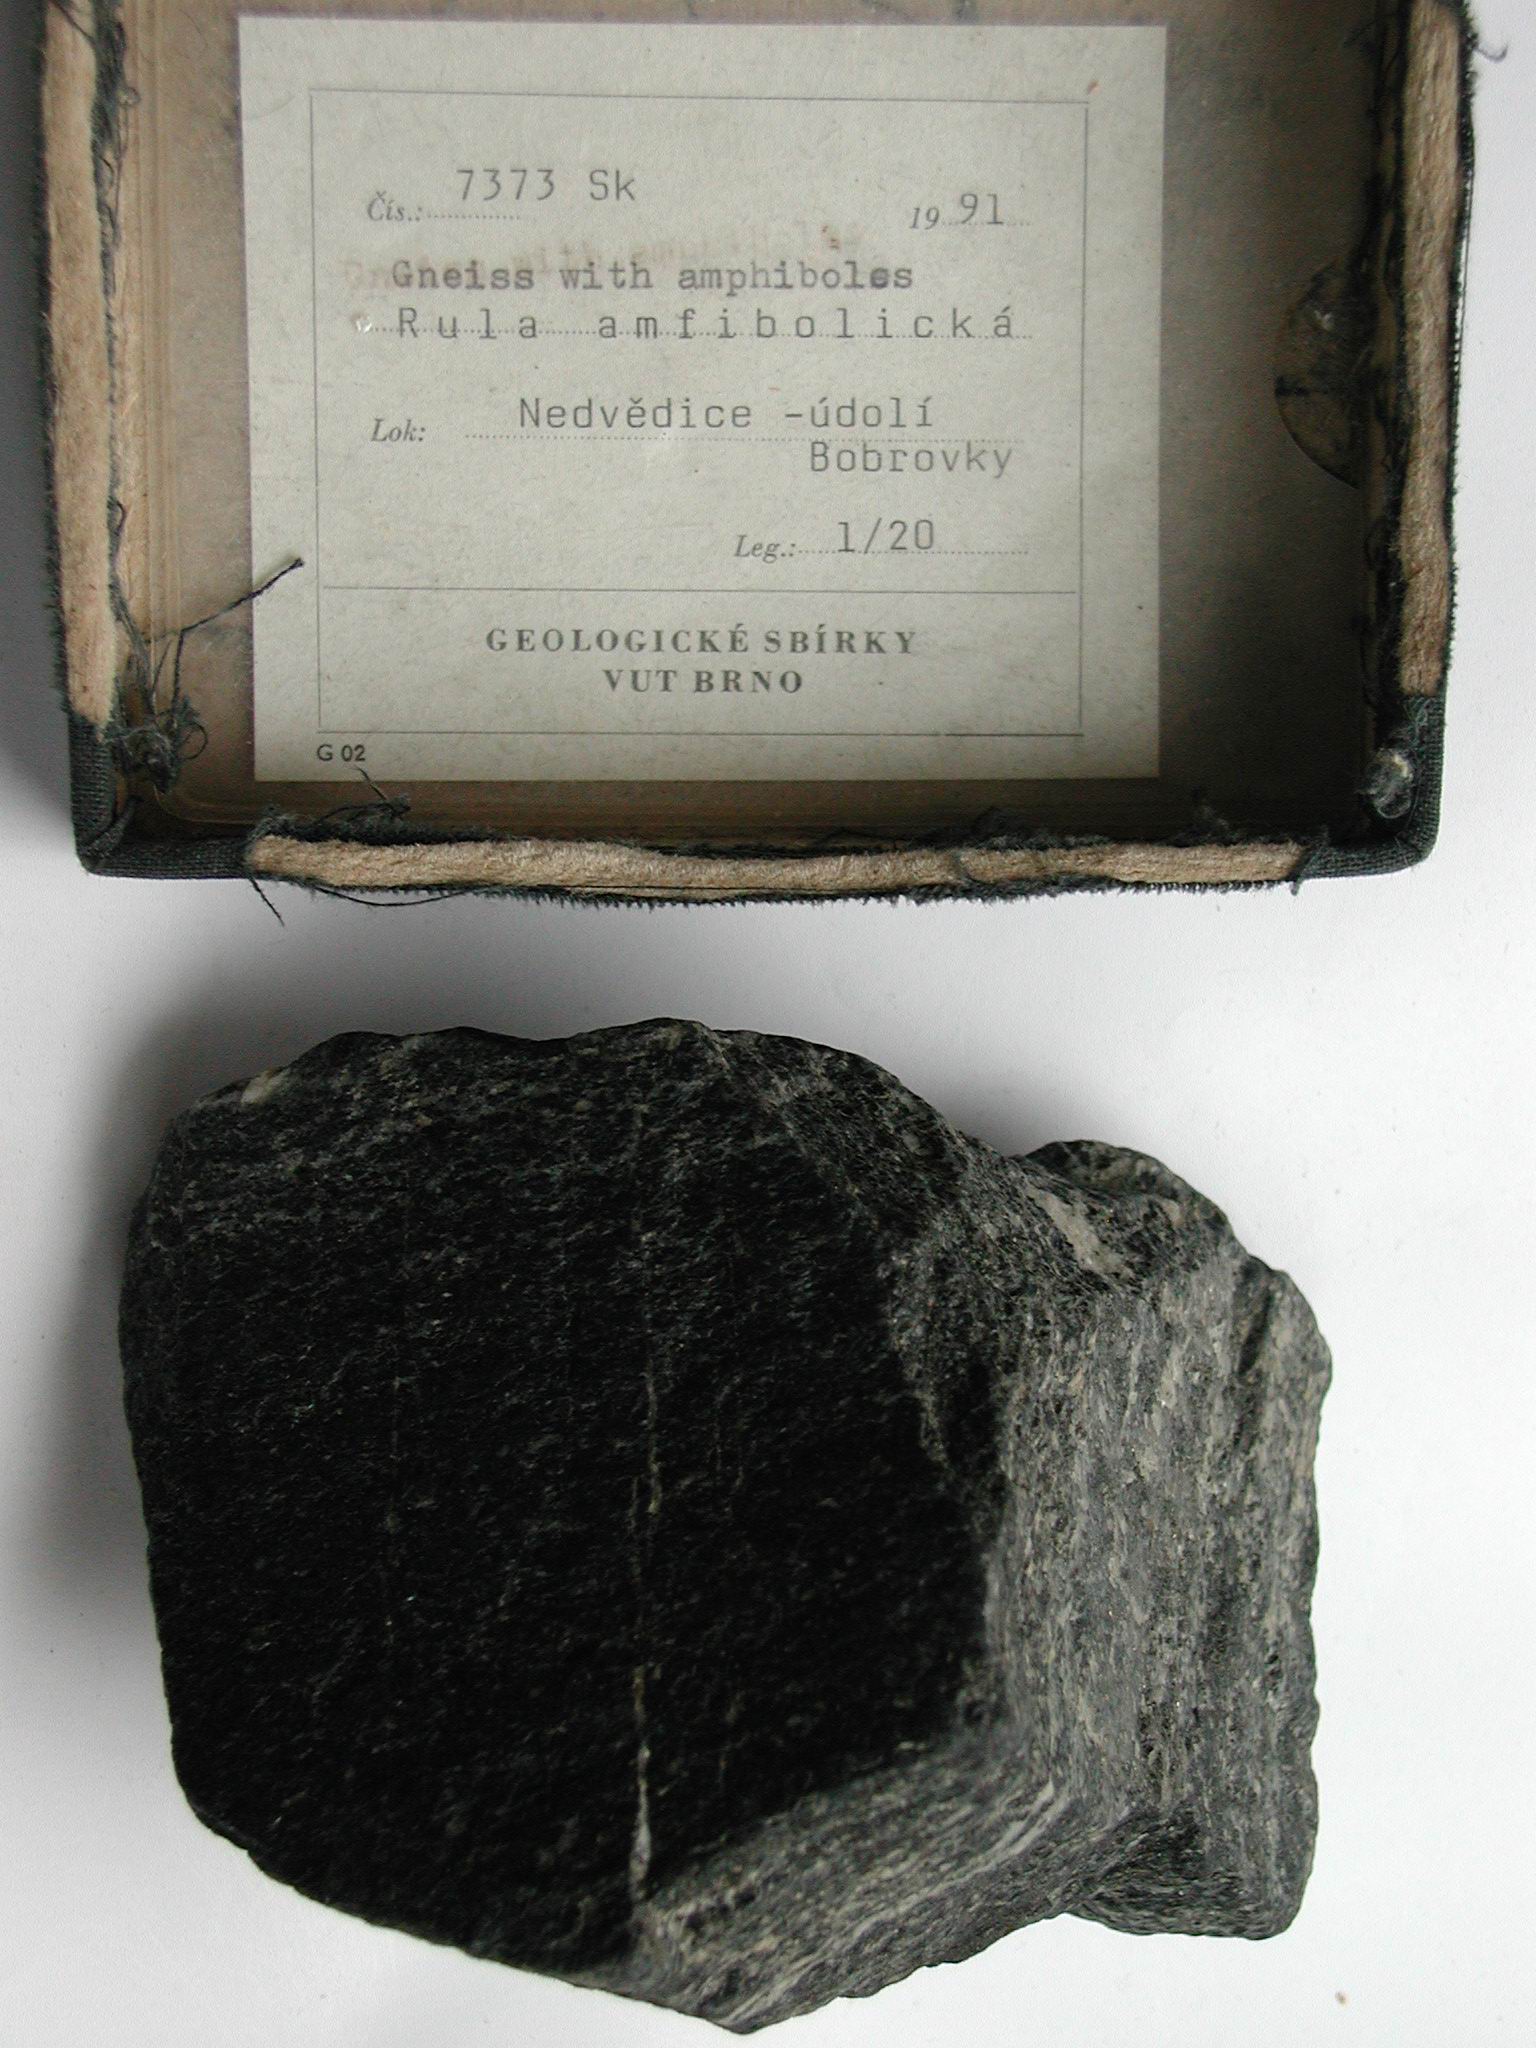 Čís.: 7373 Sk 19 91
Gneiss with amphiboles
Rula amfibolická
Lok: Nedvědice -údolí
Bobrovky
Leg.: 1/20
GEOLOGICKÉ SBÍRKY
VUT BRNO
G 02